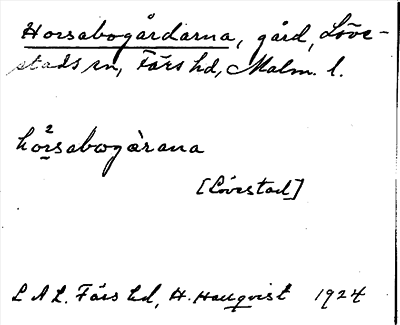 Horsabogårdarna, gård, Löve-
stads sn, Färs hd, Malm. l.
ho²rsabogàrana
[Lövestad]
L A L. Färs hd, H. Hallqvist 1924